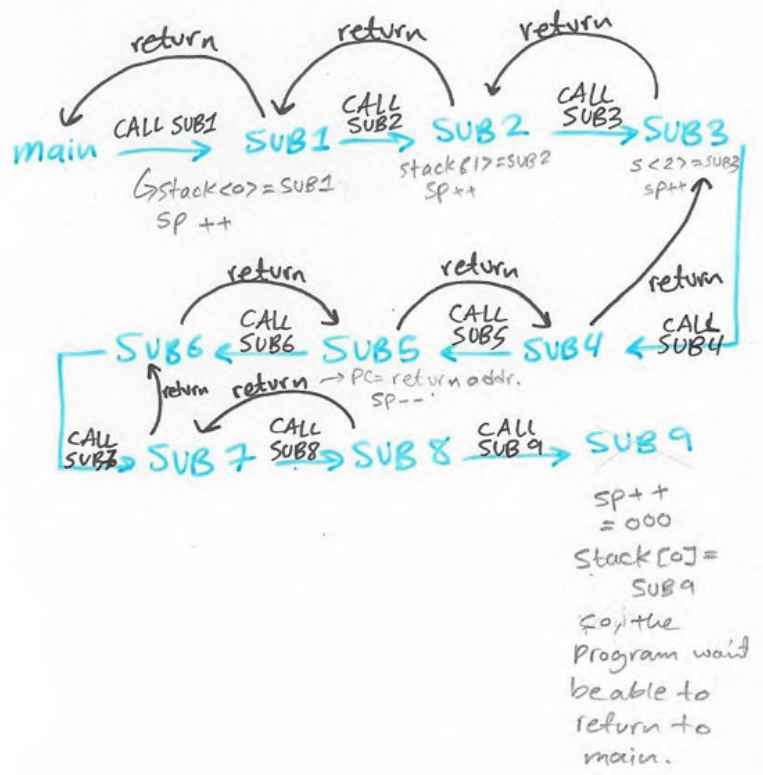 return return return
main CALL SUB1 SUB1 CALL SUB2 SUB2 CALL SUB3 SUB3
↳stack<0>=SUB1
SP ++
stack<1>=SUB2
SP++
S<2>=SUB3
SP++
return return return
SUB6 CALL SUB6 SUB5 CALL SUB5 SUB4 CALL SUB4
→ PC= return addr.
SP--
return return
CALL SUB7 SUB7 CALL SUB8 SUB8 CALL SUB9 SUB9
SP++
= 000
Stack[0]=
SUB9
so, the
Program wont
be able to
return to
main.